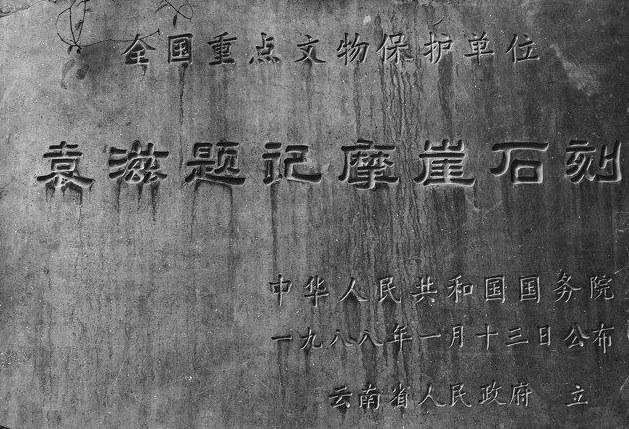 全国重点文物保护单位
袁滋题记摩崖石刻
中华人民共和国国务院
一九八八年一月十三日公布
云南省人民政府 立